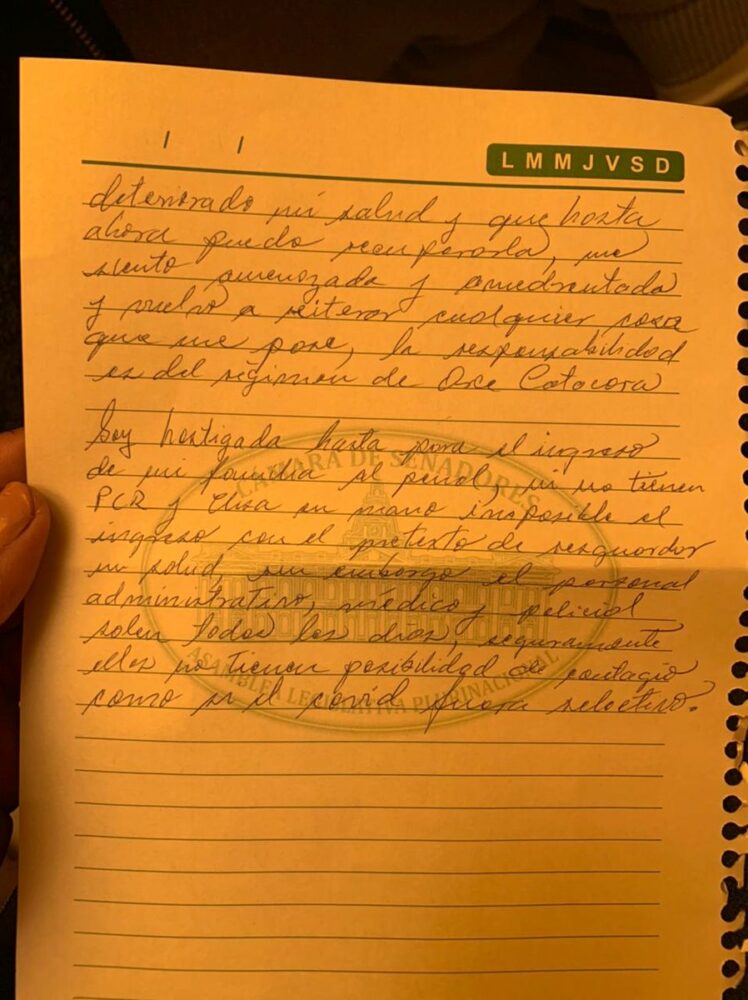 / /
L M M J V S D
deteriorado mi salud y que hasta
ahora puedo recuperarla, me
siento amenazada y amedrentada
y vuelvo a reiterar cualquier cosa
que me pase, la responsabilidad
es del régimen de Arce Catacora
Soy hostigada hasta para el ingreso
de mi familia al penal, si no tienen
PCR y Elisa en mano imposible el
ingreso con el pretexto de resguardar
mi salud, sin embargo el personal
administrativo, médico y policial
salen todos los días, seguramente
ellos no tienen posibilidad de contagio
como si el covid fuera selectivo.
CÁMARA DE SENADORES
ASAMBLEA LEGISLATIVA PLURINACIONAL